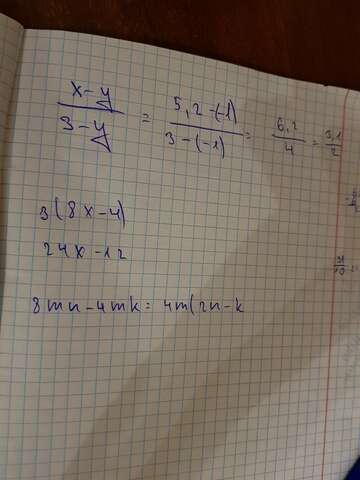 x-y / 3-y = 5,2-(-1) / 3-(-1) = 6,2 / 4 = 3,1 / 2
3(8x-4)
24x-12
8mn-4mk= 4m(2n-k